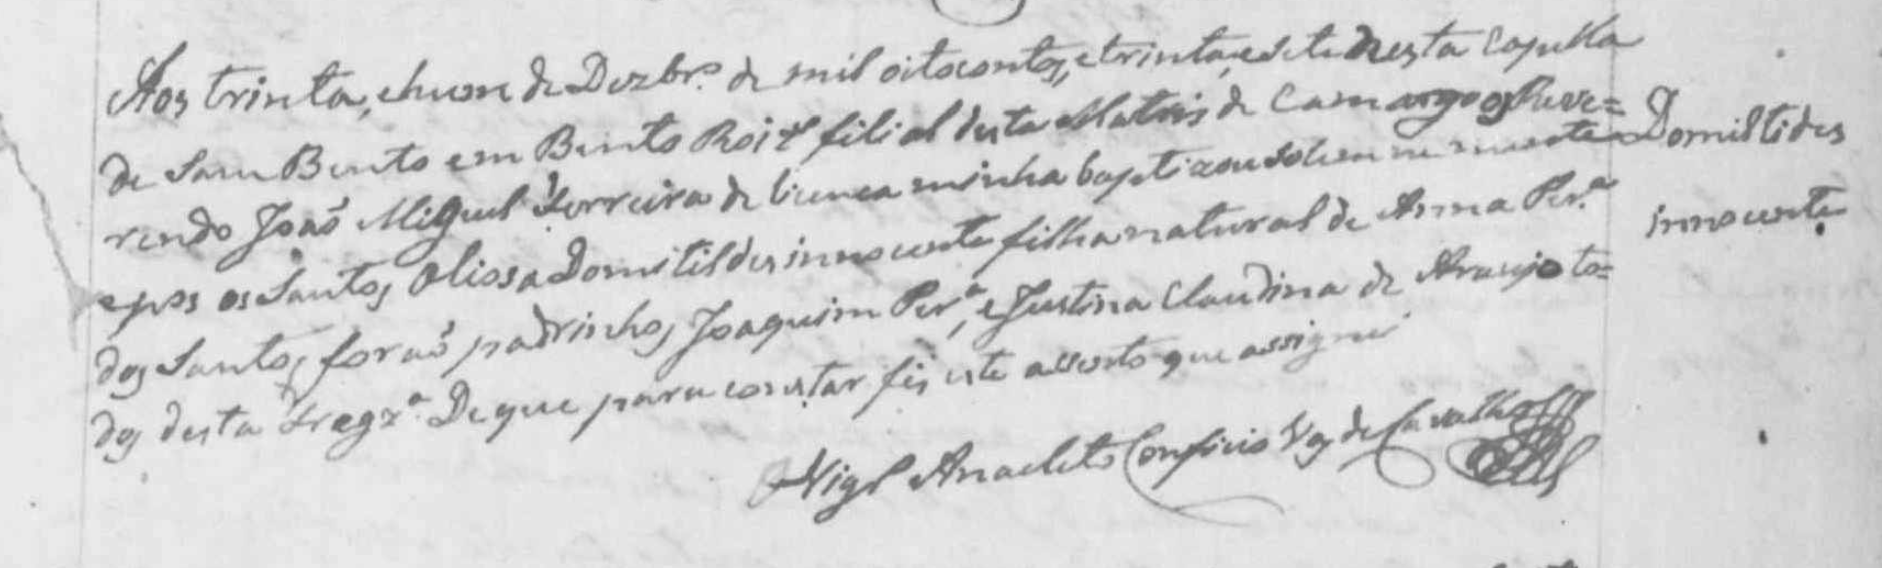 Aos trinta, e hum de Dezbr.o de mil oitocentos, e trinta, e sete nesta Capella
de Sam Bento em Bento Roiz filial desta Matris de Camargos o Reve=
rendo João Miguel Ferreira de licença minha baptizou solemnemente
e pos os Santos Olios a Domitildes innocente filha natural de Anna Per.a
dos Santos, forão padrinhos, Joaquim Per.a, e Justina Claudina de Araujo to=
dos desta Fregz.a De que para constar fis este assento que assignei
Domiltides
innocente
Vigr.o Anacleto Confucio de Carvalho